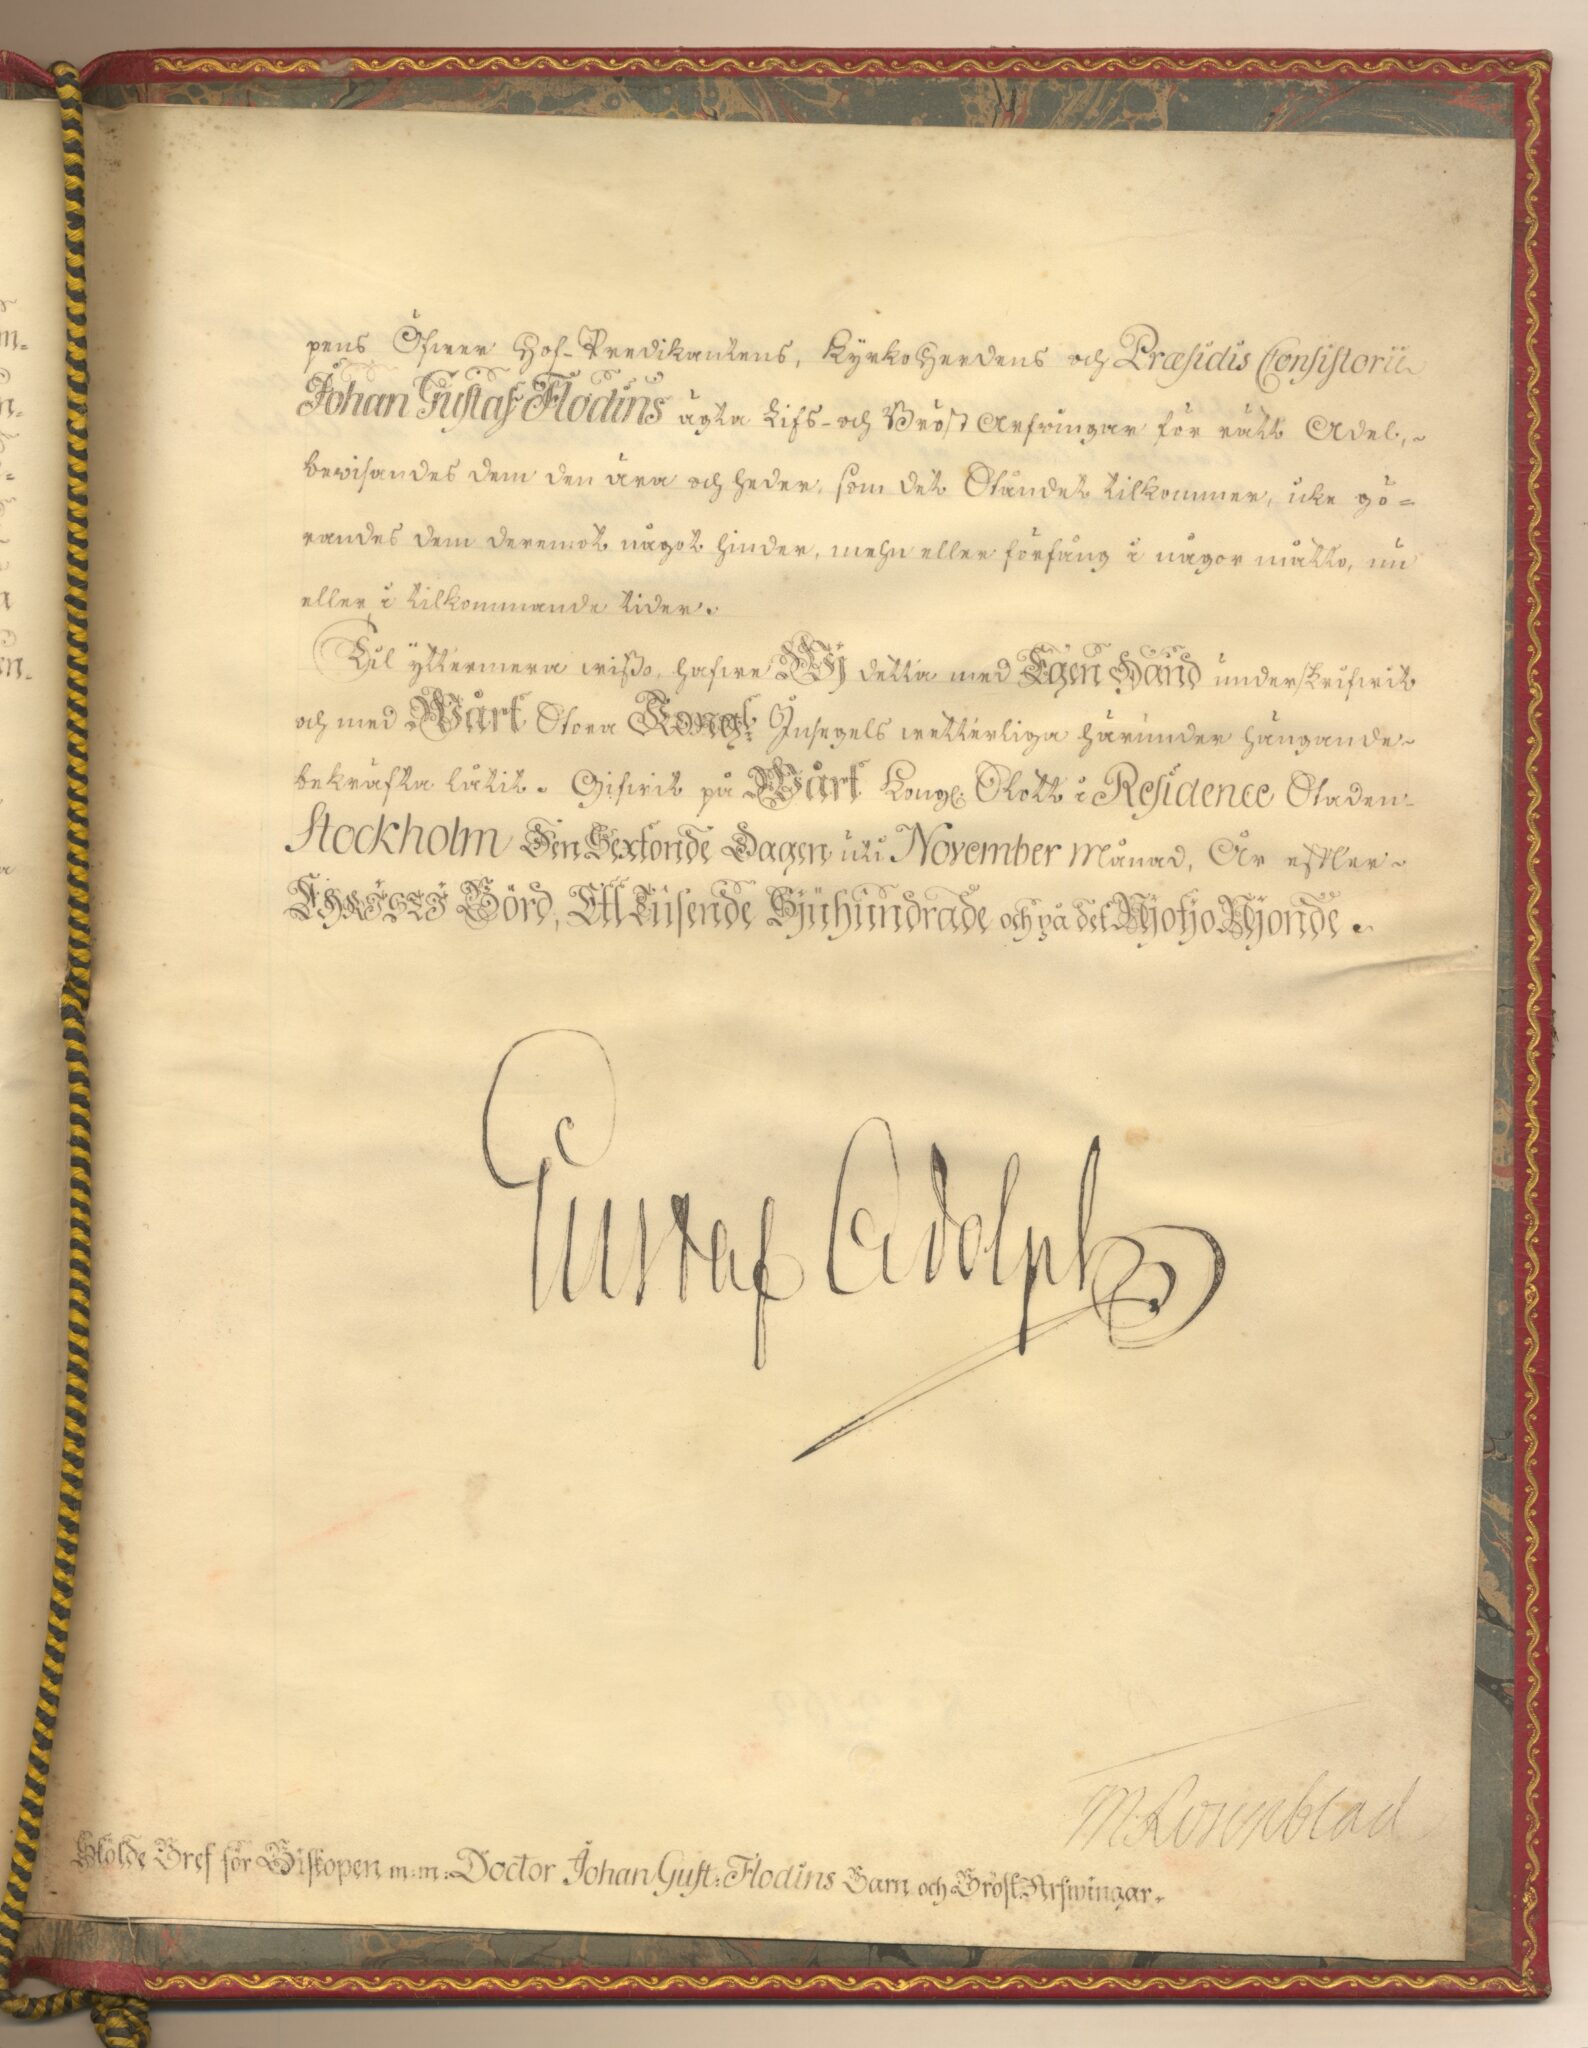 pens Öfwer Hof-Predikantens, KyrkoHerdens och Præsidis Consistorii
Johan Gustaf Flodins ägta Lifs- och Bröst Arfwingar för rätt Adel,
bewisandes dem den ära och heder, som det Ståndet tilkommer, icke gö-
randes dem deremot något hinder, mehn eller förfång i någor måtto, nu
eller i tilkommande tider.
Til yttermera wißo, hafwe Wij detta med Egen Hand underskrifwit
och med Wårt Stora Kongl. Insegels wetterliga härunder hängande
bekräfta låtit. Gifwit på Wårt Kongl. Slott i Residence Staden
Stockholm Den Sextonde Dagen uti November Månad, År efter
CHRISTI Börd, Ett Tusende Sjuhundrade och på det Njotjo Njonde.
Gustaf Adolph
M. Rosenblad
Skölde Bref för Biskopen m.m: Doctor Johan Gust: Flodins Barn och Bröst Arfwingar.
m-
n-
en-